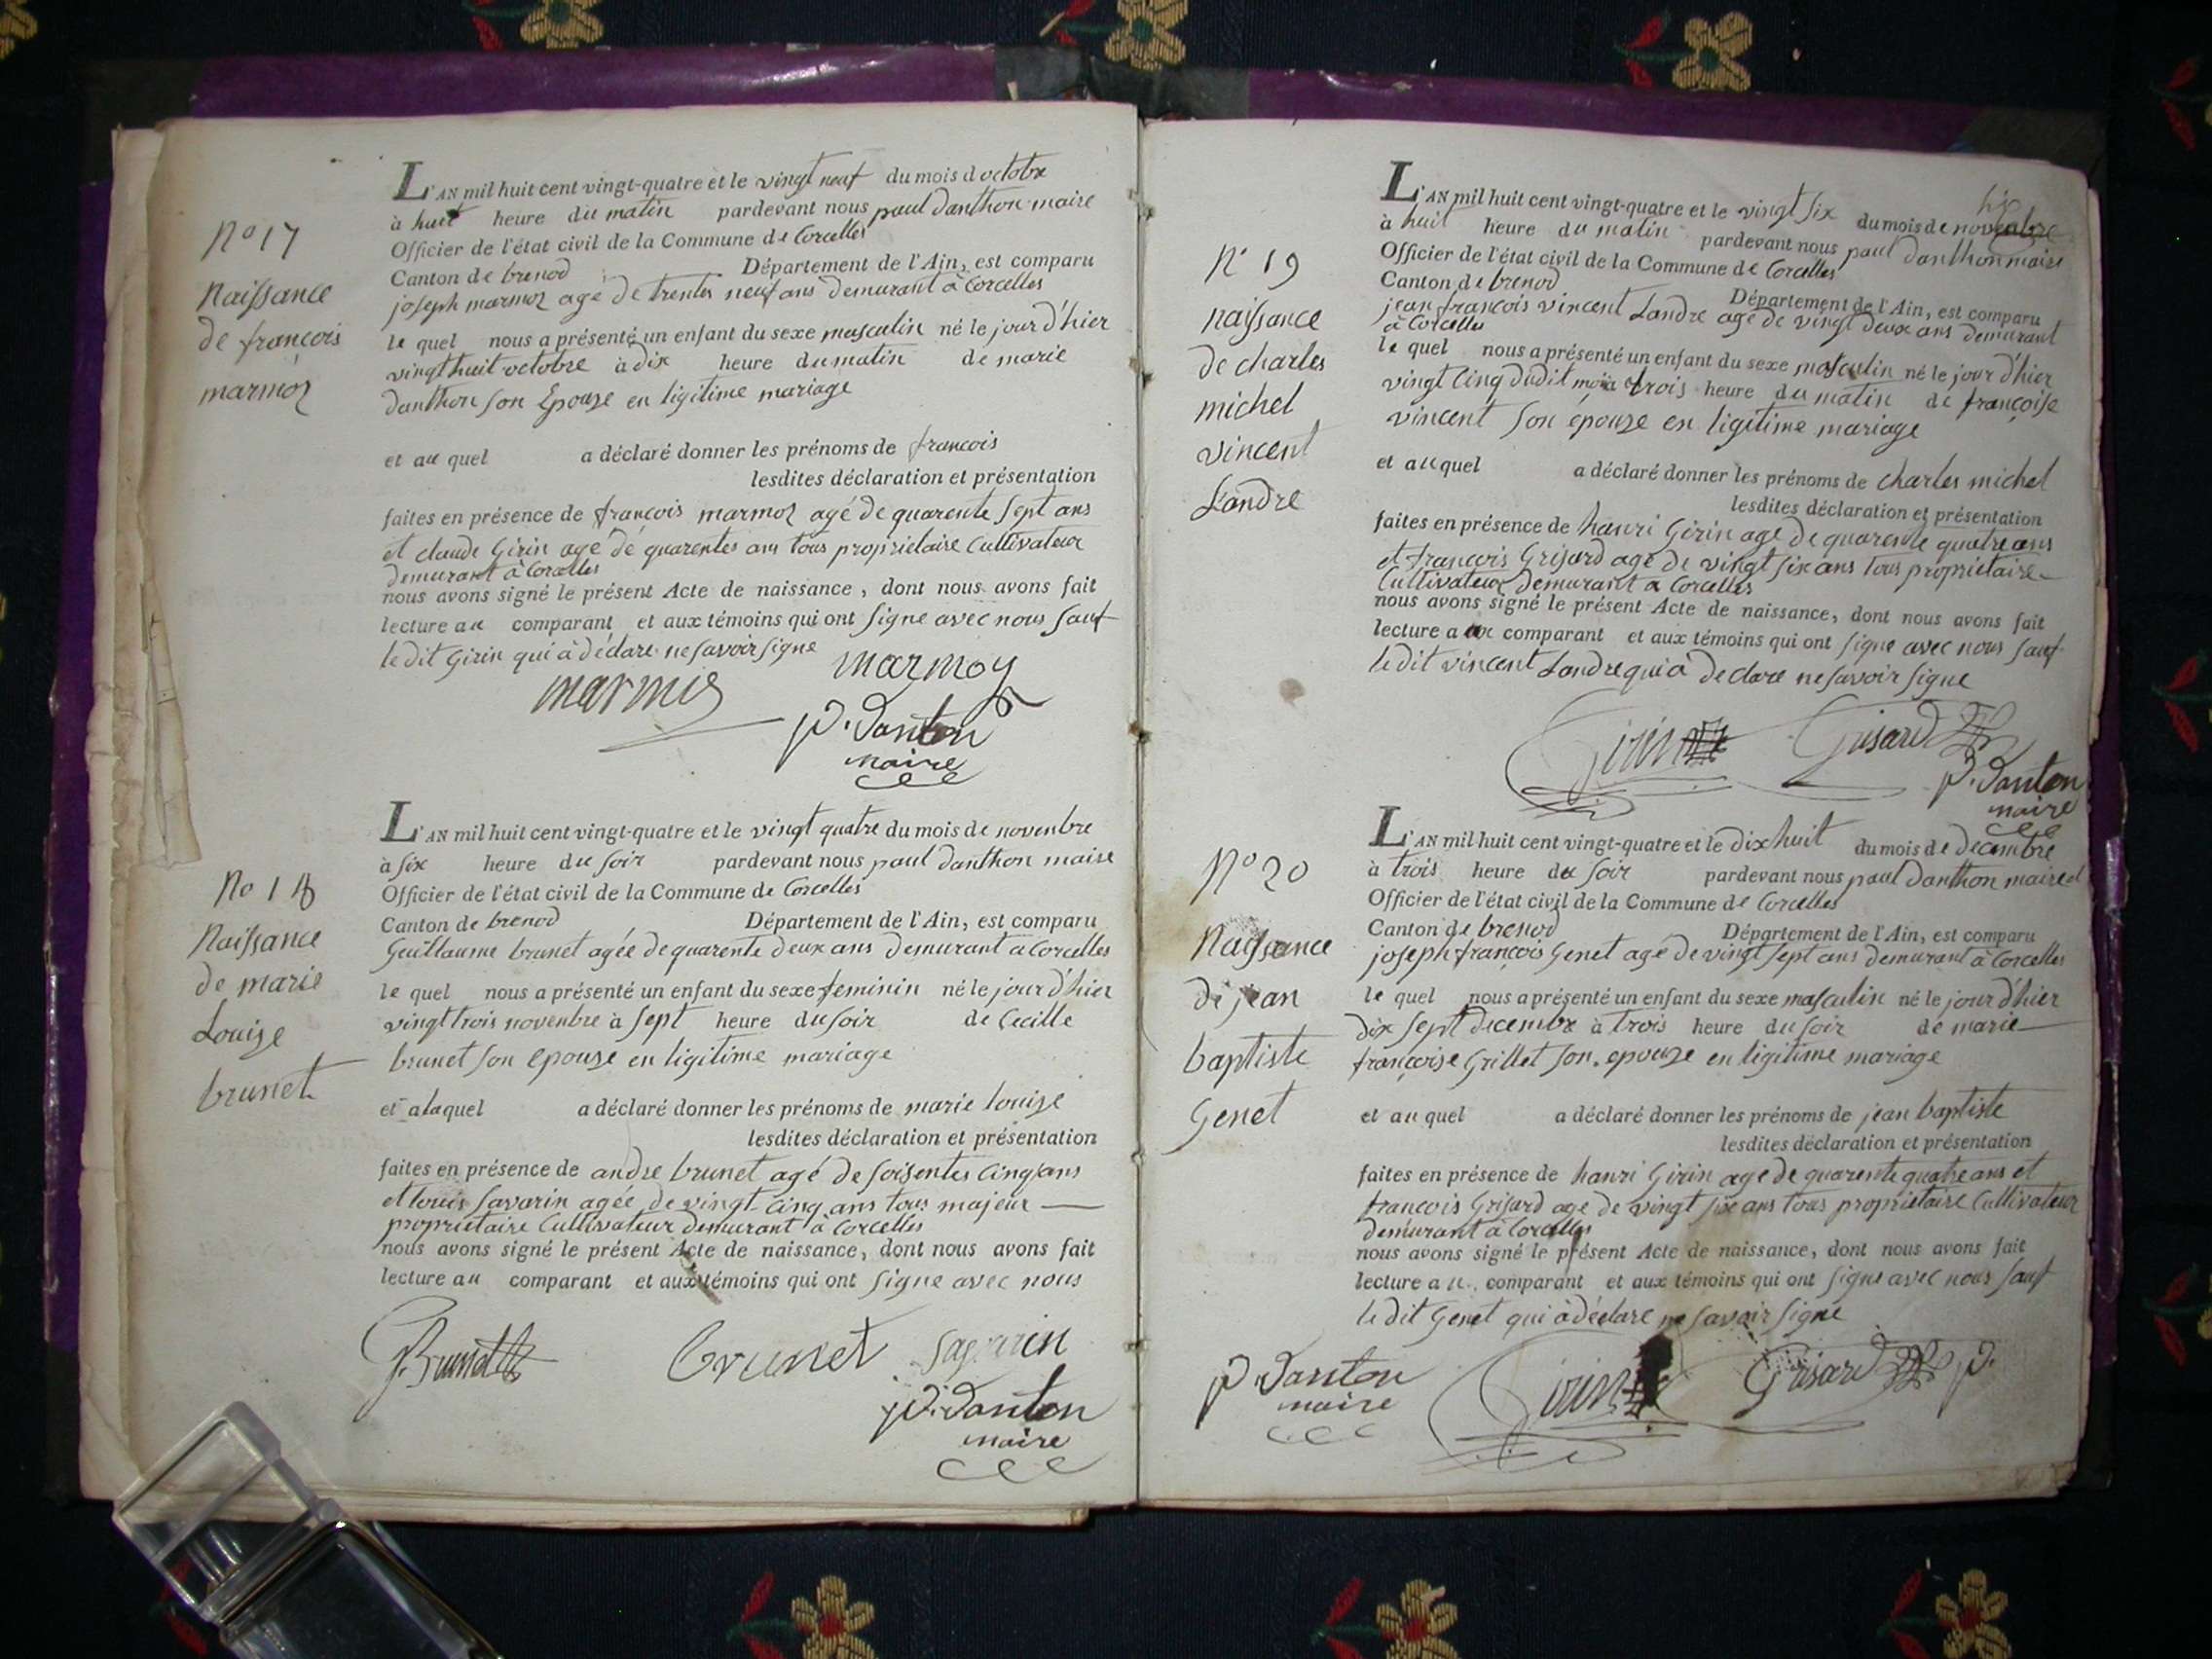 N° 17
Naissance
de françois
marmoz
L'AN mil huit cent vingt-quatre et le vingt neuf du mois d octobre
à huit heure du matin pardevant nous paul Danthon maire
Officier de l'état civil de la Commune de Corcelles
Canton de brenod Département de l'Ain, est comparu
joseph marmoz agé de trentes neuf ans demurant à Corcelles
le quel nous a présenté un enfant du sexe masculin né le jour d'hier
vingt huit octobre à dix heure du matin de marie
danthon son Epouze en ligitime mariage
et au quel a déclaré donner les prénoms de françois
lesdites déclaration et présentation
faites en présence de françois marmoz agé de quarente sept ans
et claude Girin agé de quarentes ans tous proprietaire Cultivateur
demurant à Corcelles
nous avons signé le présent Acte de naissance, dont nous avons fait
lecture au comparant et aux témoins qui ont signe avec nous sauf
le dit Girin qui à déclare ne savoir signe
marmoz
P. Danton
maire
N° 18
Naissance
de marie
Louize
brunet
L'AN mil huit cent vingt-quatre et le vingt quatre du mois de novenbre
à six heure du soir pardevant nous paul Danthon maire
Officier de l'état civil de la Commune de Corcelles
Canton de brenod Département de l'Ain, est comparu
Guillaume brunet agée de quarente deux ans demurant à Corcelles
le quel nous a présenté un enfant du sexe feminin né le jour d'hier
vingt trois novenbre à sept heure du soir de Cecille
brunet son epouze en ligitime mariage
et a laquel a déclaré donner les prénoms de marie louize
lesdites déclaration et présentation
faites en présence de andre brunet agé de soisentes Cinq ans
et louis Savarin agée de vingt-Cinq ans tous majeur
proprietaire Cultivateur demurant à Corcelles
nous avons signé le présent Acte de naissance, dont nous avons fait
lecture au comparant et aux témoins qui ont signe avec nous
Brunet brunet Savarin
P. Danton
maire
N° 19
naissance
de charles
michel
vincent
Landre
L'AN mil huit cent vingt-quatre et le vingt six du mois de novenbre
à huit heure du matin pardevant nous paul Danthon maire
Officier de l'état civil de la Commune de Corcelles
Canton de brenod Département de l'Ain, est comparu
jean françois vincent Landre agé de vingt deux ans demurant
à Corcelles
le quel nous a présenté un enfant du sexe masculin né le jour d'hier
vingt Cinq dudit mois à trois heure du matin de françoise
vincent son épouze en ligitime mariage
et au quel a déclaré donner les prénoms de charles michel
lesdites déclaration et présentation
faites en présence de hanri Girin age de quarente quatre ans
et françois Grisard agé de vingt six ans tous proprietaire
Cultivateur demurant à Corcelles
nous avons signé le présent Acte de naissance, dont nous avons fait
lecture au comparant et aux témoins qui ont signe avec nous sauf
le dit vincent Landre qui à declare ne savoir signe
Girin Grisard
P. Danton
maire
N° 20
Naissance
de jean
baptiste
Genet
L'AN mil huit cent vingt-quatre et le dix huit du mois de decembre
à trois heure du soir pardevant nous paul Danthon maire
Officier de l'état civil de la Commune de Corcelles
Canton de brenod Département de l'Ain, est comparu
joseph françois Genet agé de vingt sept ans demurant à Corcelles
le quel nous a présenté un enfant du sexe masculin né le jour d'hier
dix sept decembre à trois heure du soir de marie
françoise Grillet son epouze en ligitime mariage
et au quel a déclaré donner les prénoms de jean baptiste
lesdites déclaration et présentation
faites en présence de hanri Girin age de quarente quatre ans et
francois Grisard age de vingt six ans tous proprietaire Cultivateur
demurant à Corcelles
nous avons signé le présent Acte de naissance, dont nous avons fait
lecture au comparant et aux témoins qui ont signe avec nous sauf
le dit Genet qui à déclare ne savoir signe
P. Danton Girin Grisard P.
maire